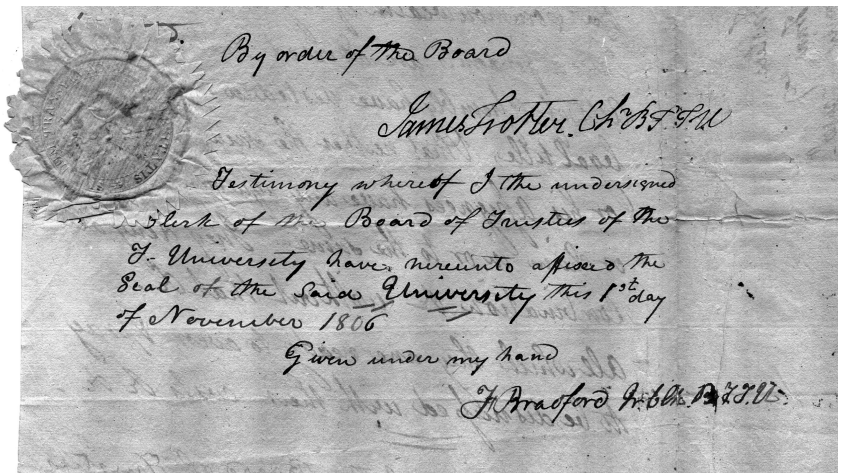 By order of the Board
James Trotter. Chr B T T U
Testimony whereof I the undersigned
Clerk of the Board of Trustees of the
T- University have hereunto affixed the
Seal of the said University this 1st day
of November 1806
Given under my hand
F Bradford Jr. Clk. B T. T. U.